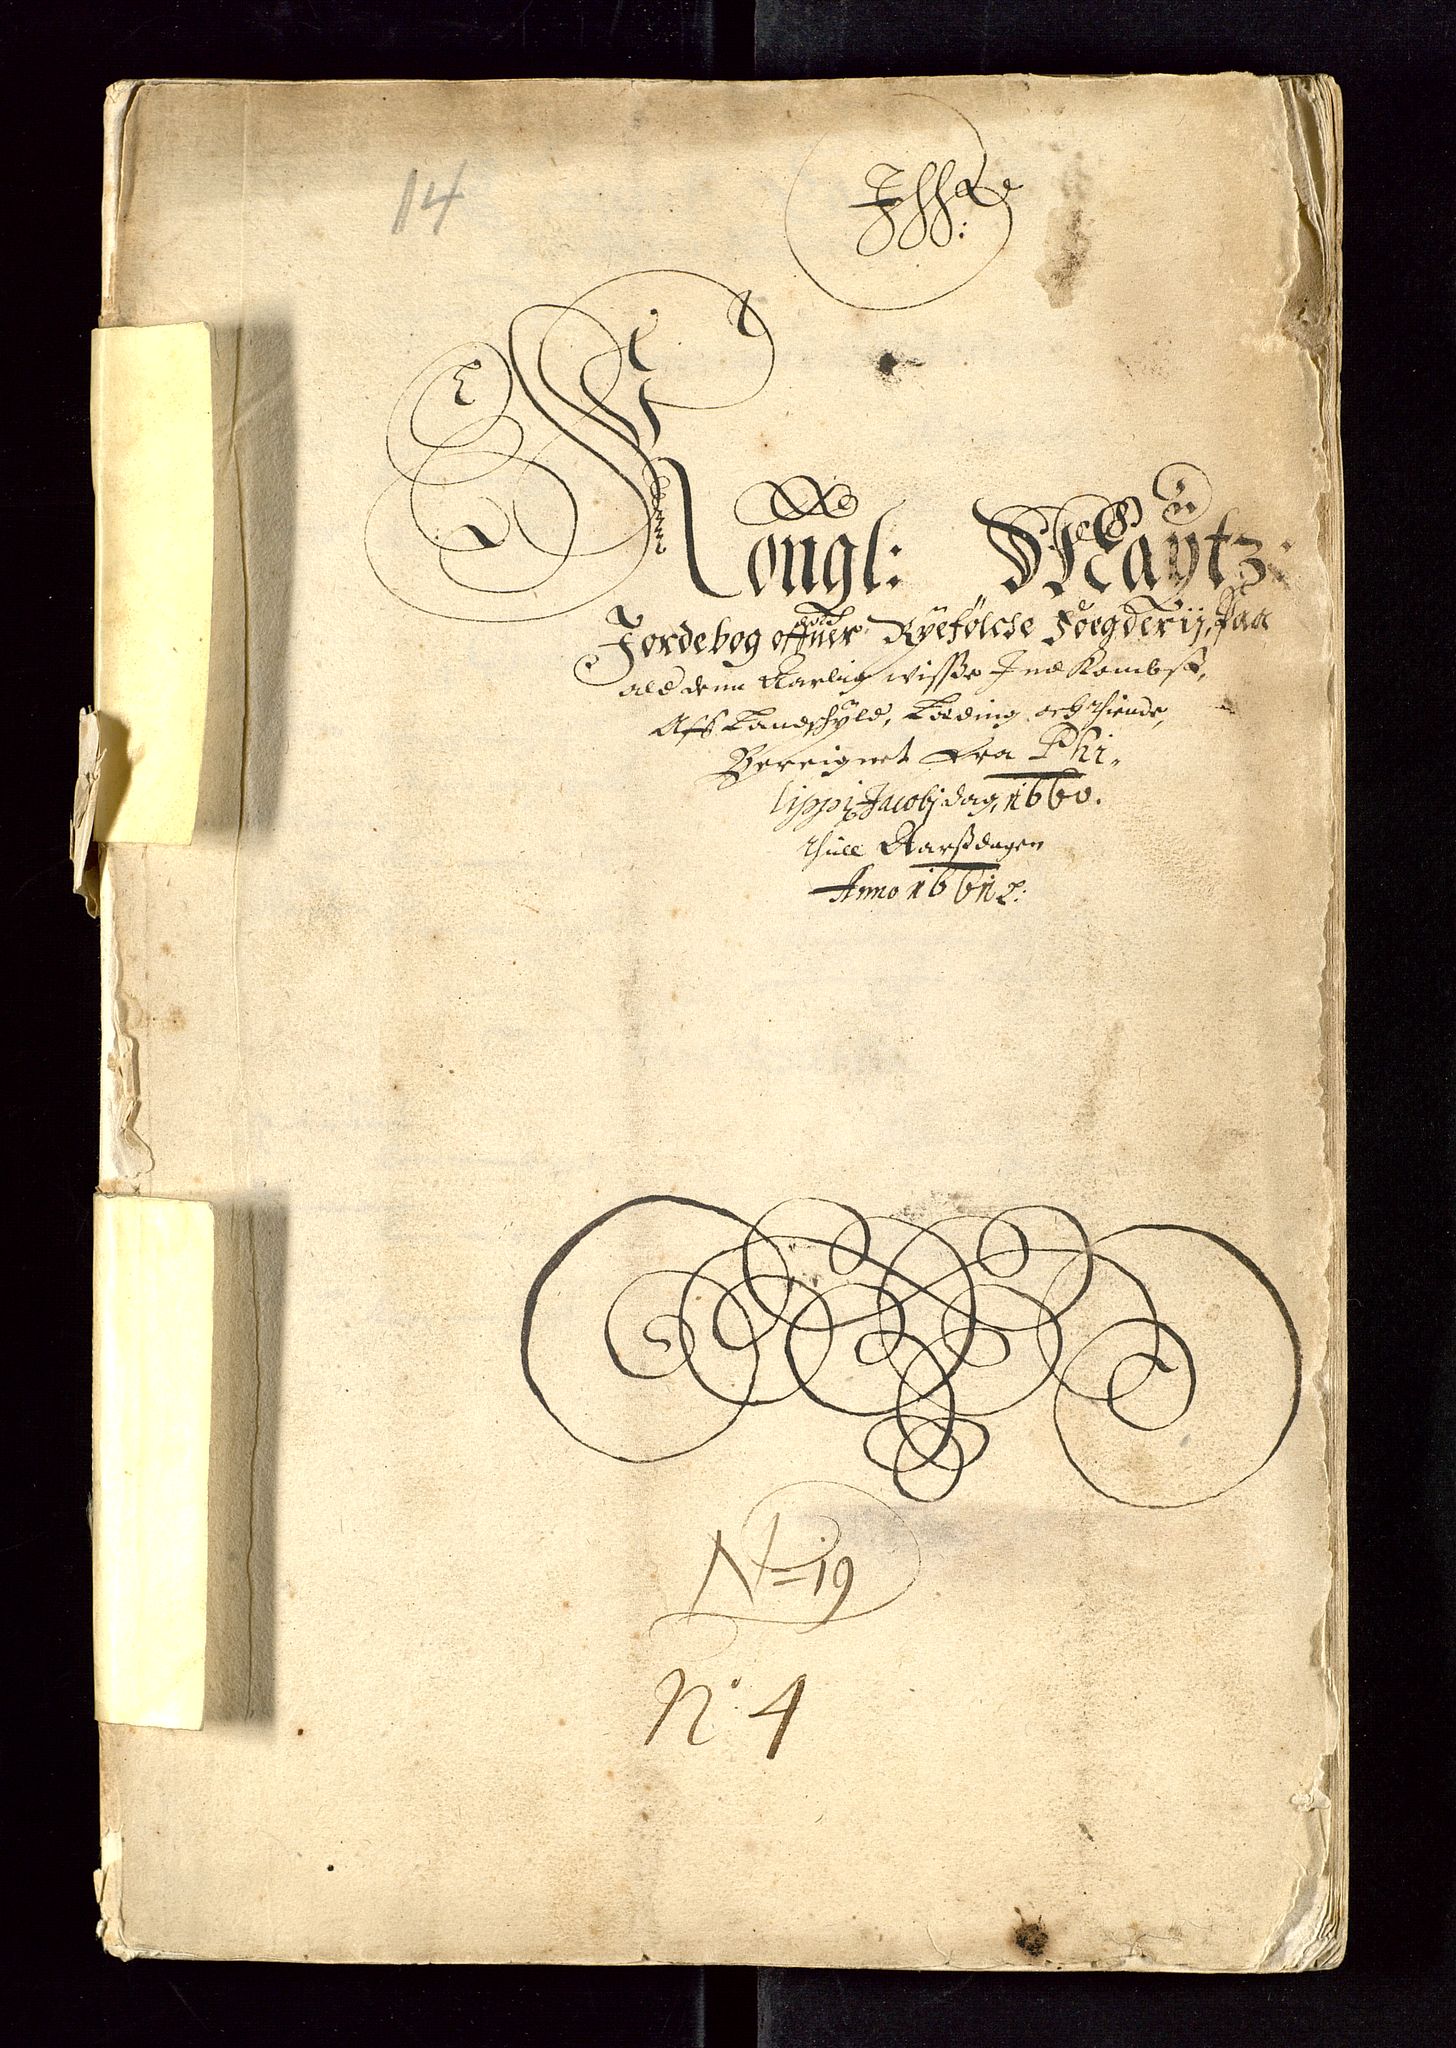 14
Kongl: Maÿtz:
Jordebog offuer Ryefølche Foegderij, Paa
ald denn Aarlig wisse Ind Kombst,
Aff Landschyld, Leding och thiende,
Bereignet fra Phi,
lippi Jacobj dag, 1660.
thill Aarßdagen
Anno 1661
N=19
N: 4